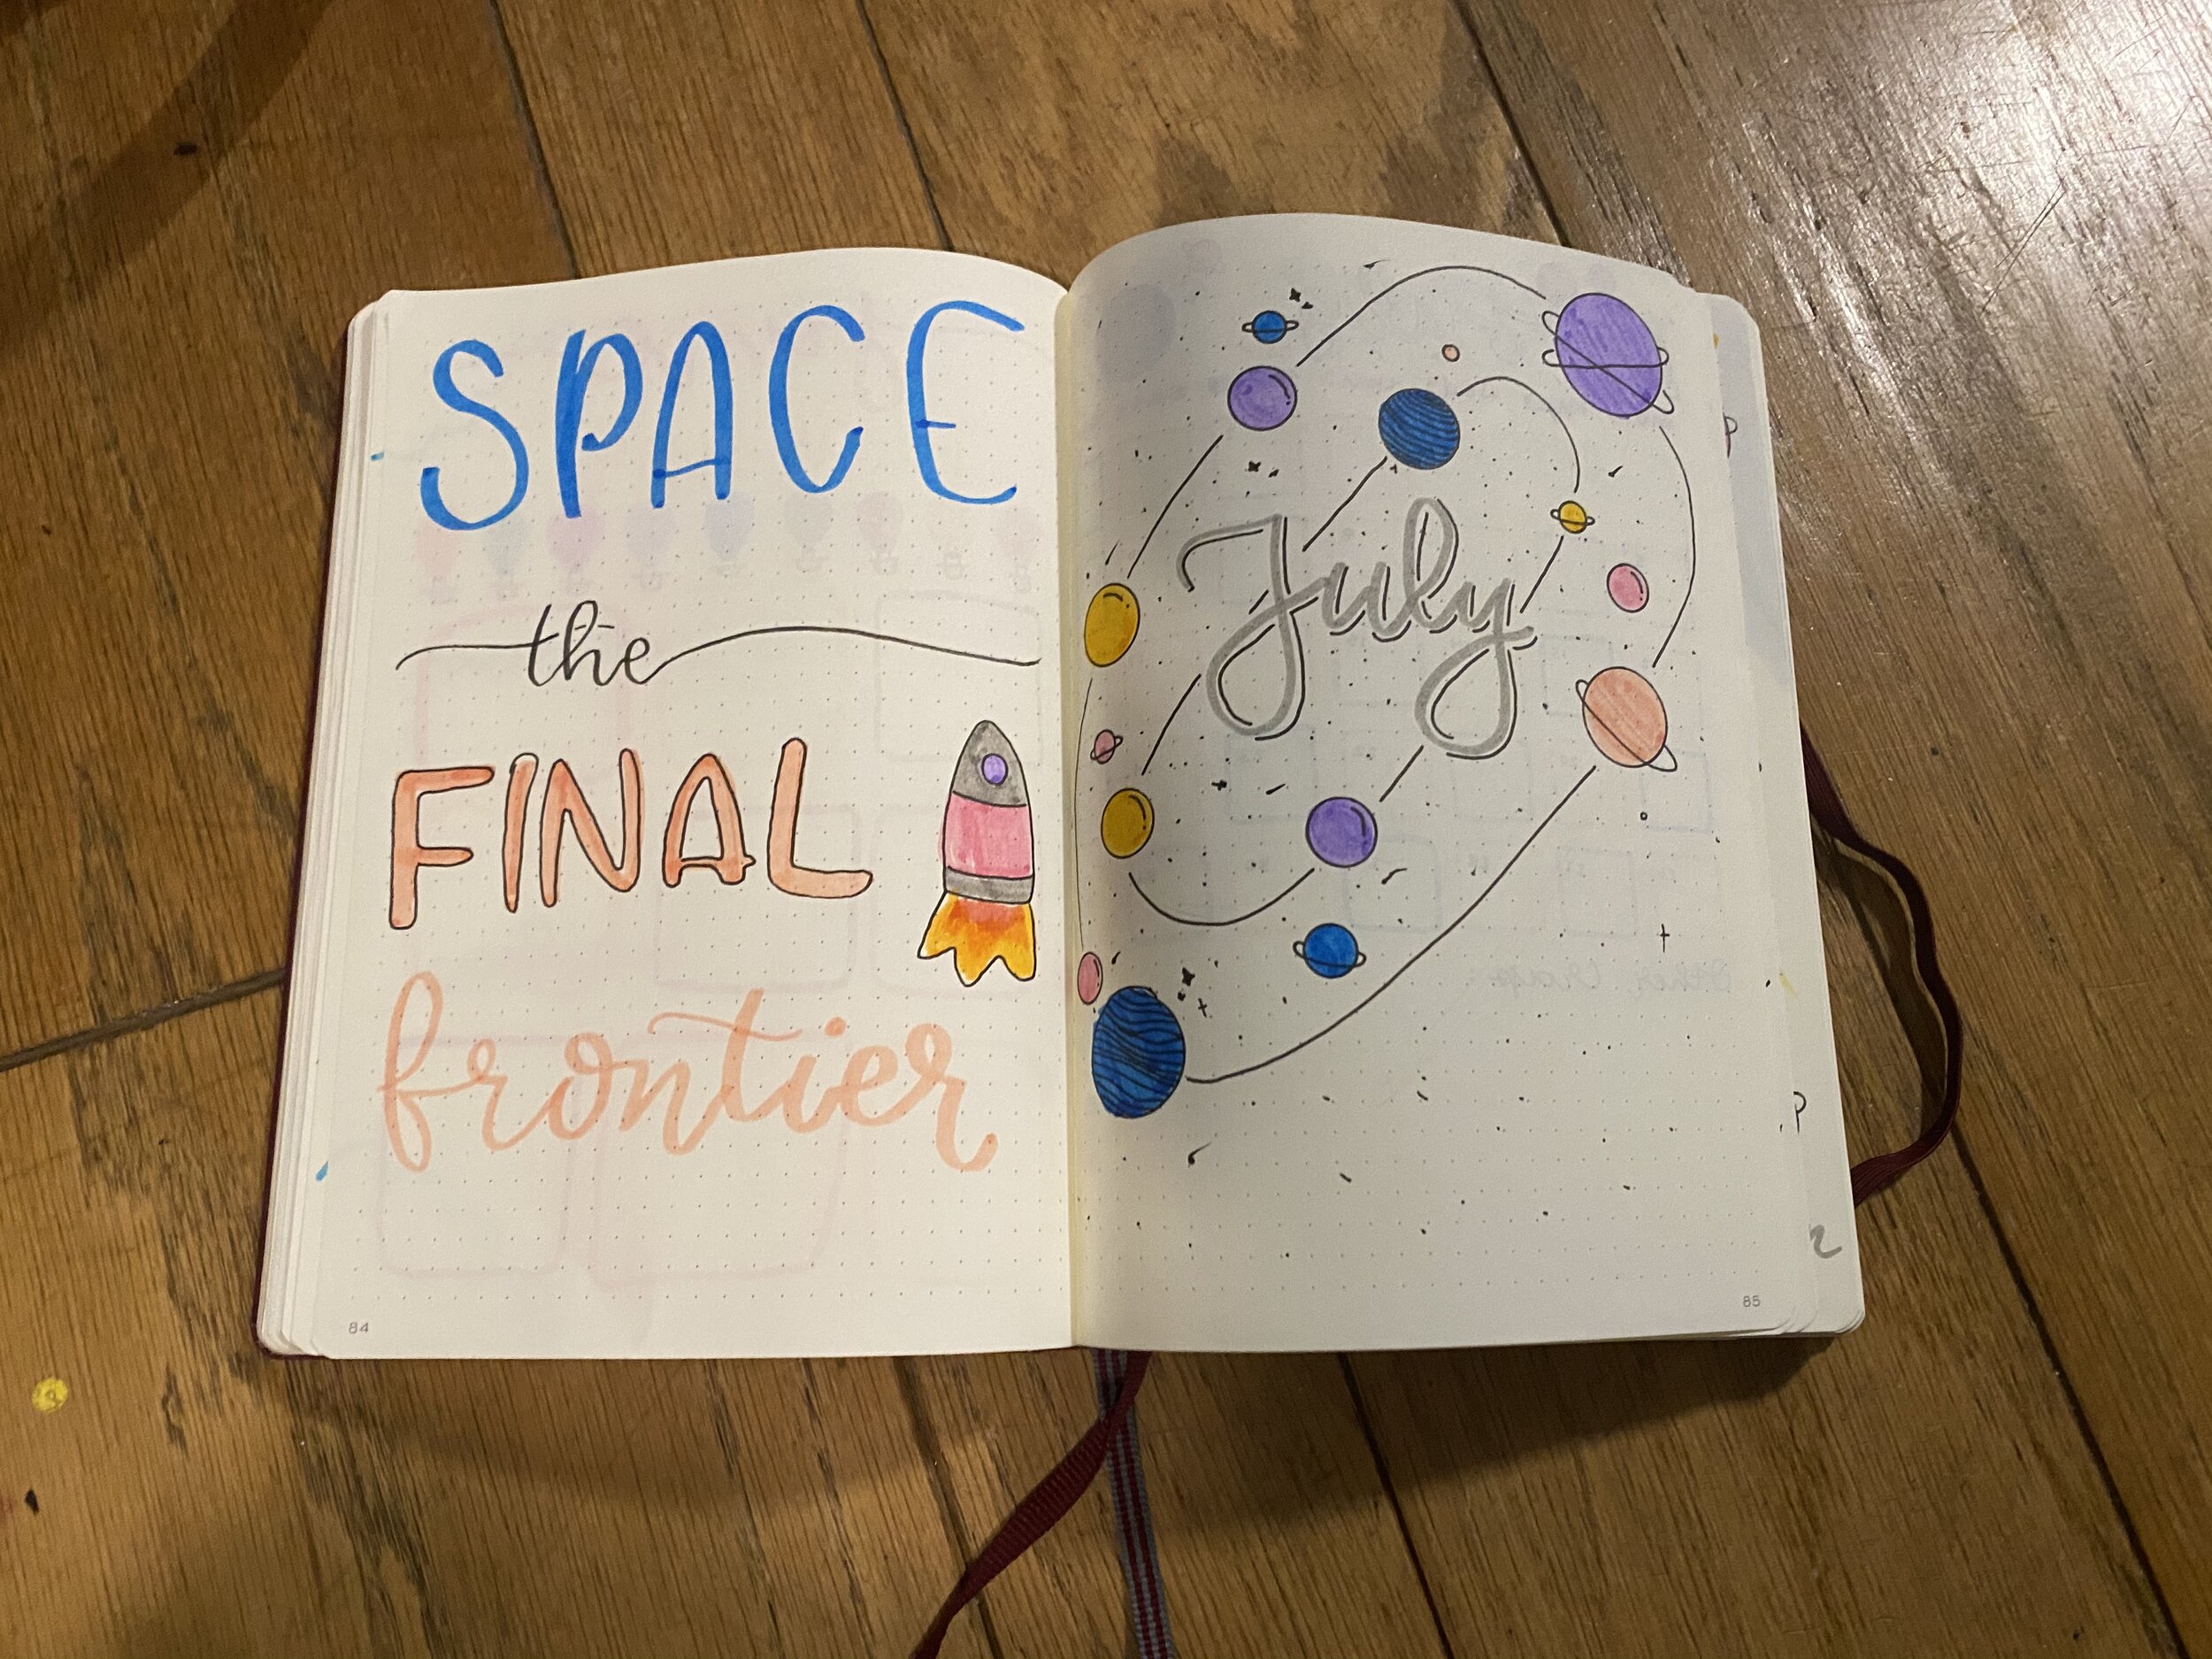 SPACE
the
FINAL
frontier
84
July
85